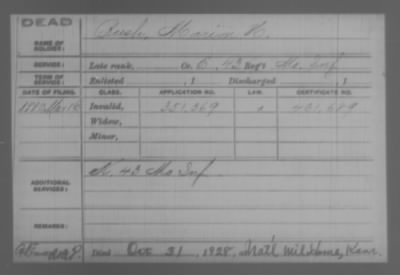 DEAD
NAME OF SOLDIER: Bush, Marion H.
SERVICE: Late rank, Co. 43 Reg't Mo. Inf.
TERM OF SERVICE: Enlisted , 1 Discharged , 1
DATE OF FILING. CLASS. APPLICATION NO. LAW. CERTIFICATE NO.
Invalid, 351,369
Widow,
Minor,
ADDITIONAL SERVICES: K. 43 Mo Inf.
REMARKS:
Died 31, 1928, Nat'l Mil Home, Kans.